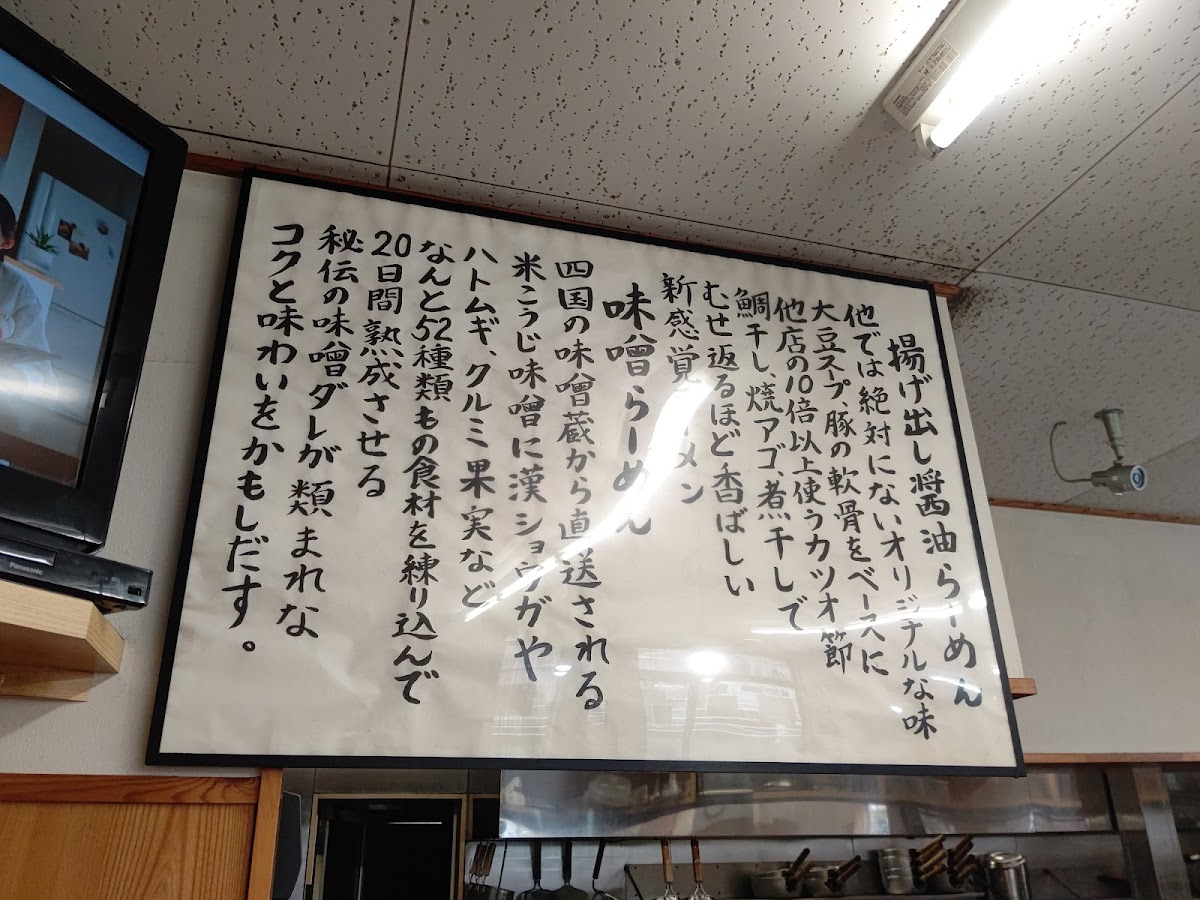 揚げ出し醤油らーめん
他では絶対にないオリジナルな味
大豆スプ、豚の軟骨をベースに
他店の10倍以上使うカツオ節
鯛干し、焼アゴ、煮干しで
むせ返るほど香ばしい
新感覚ラーメン
味噌らーめん
四国の味噌蔵から直送される
米こうじ味噌に漢ショウガや
ハトムギ、クルミ果実など
なんと52種類もの食材を練り込んで
20日間熟成させる
秘伝の味噌ダレが類まれな
コクと味わいをかもしだす。
Panasonic